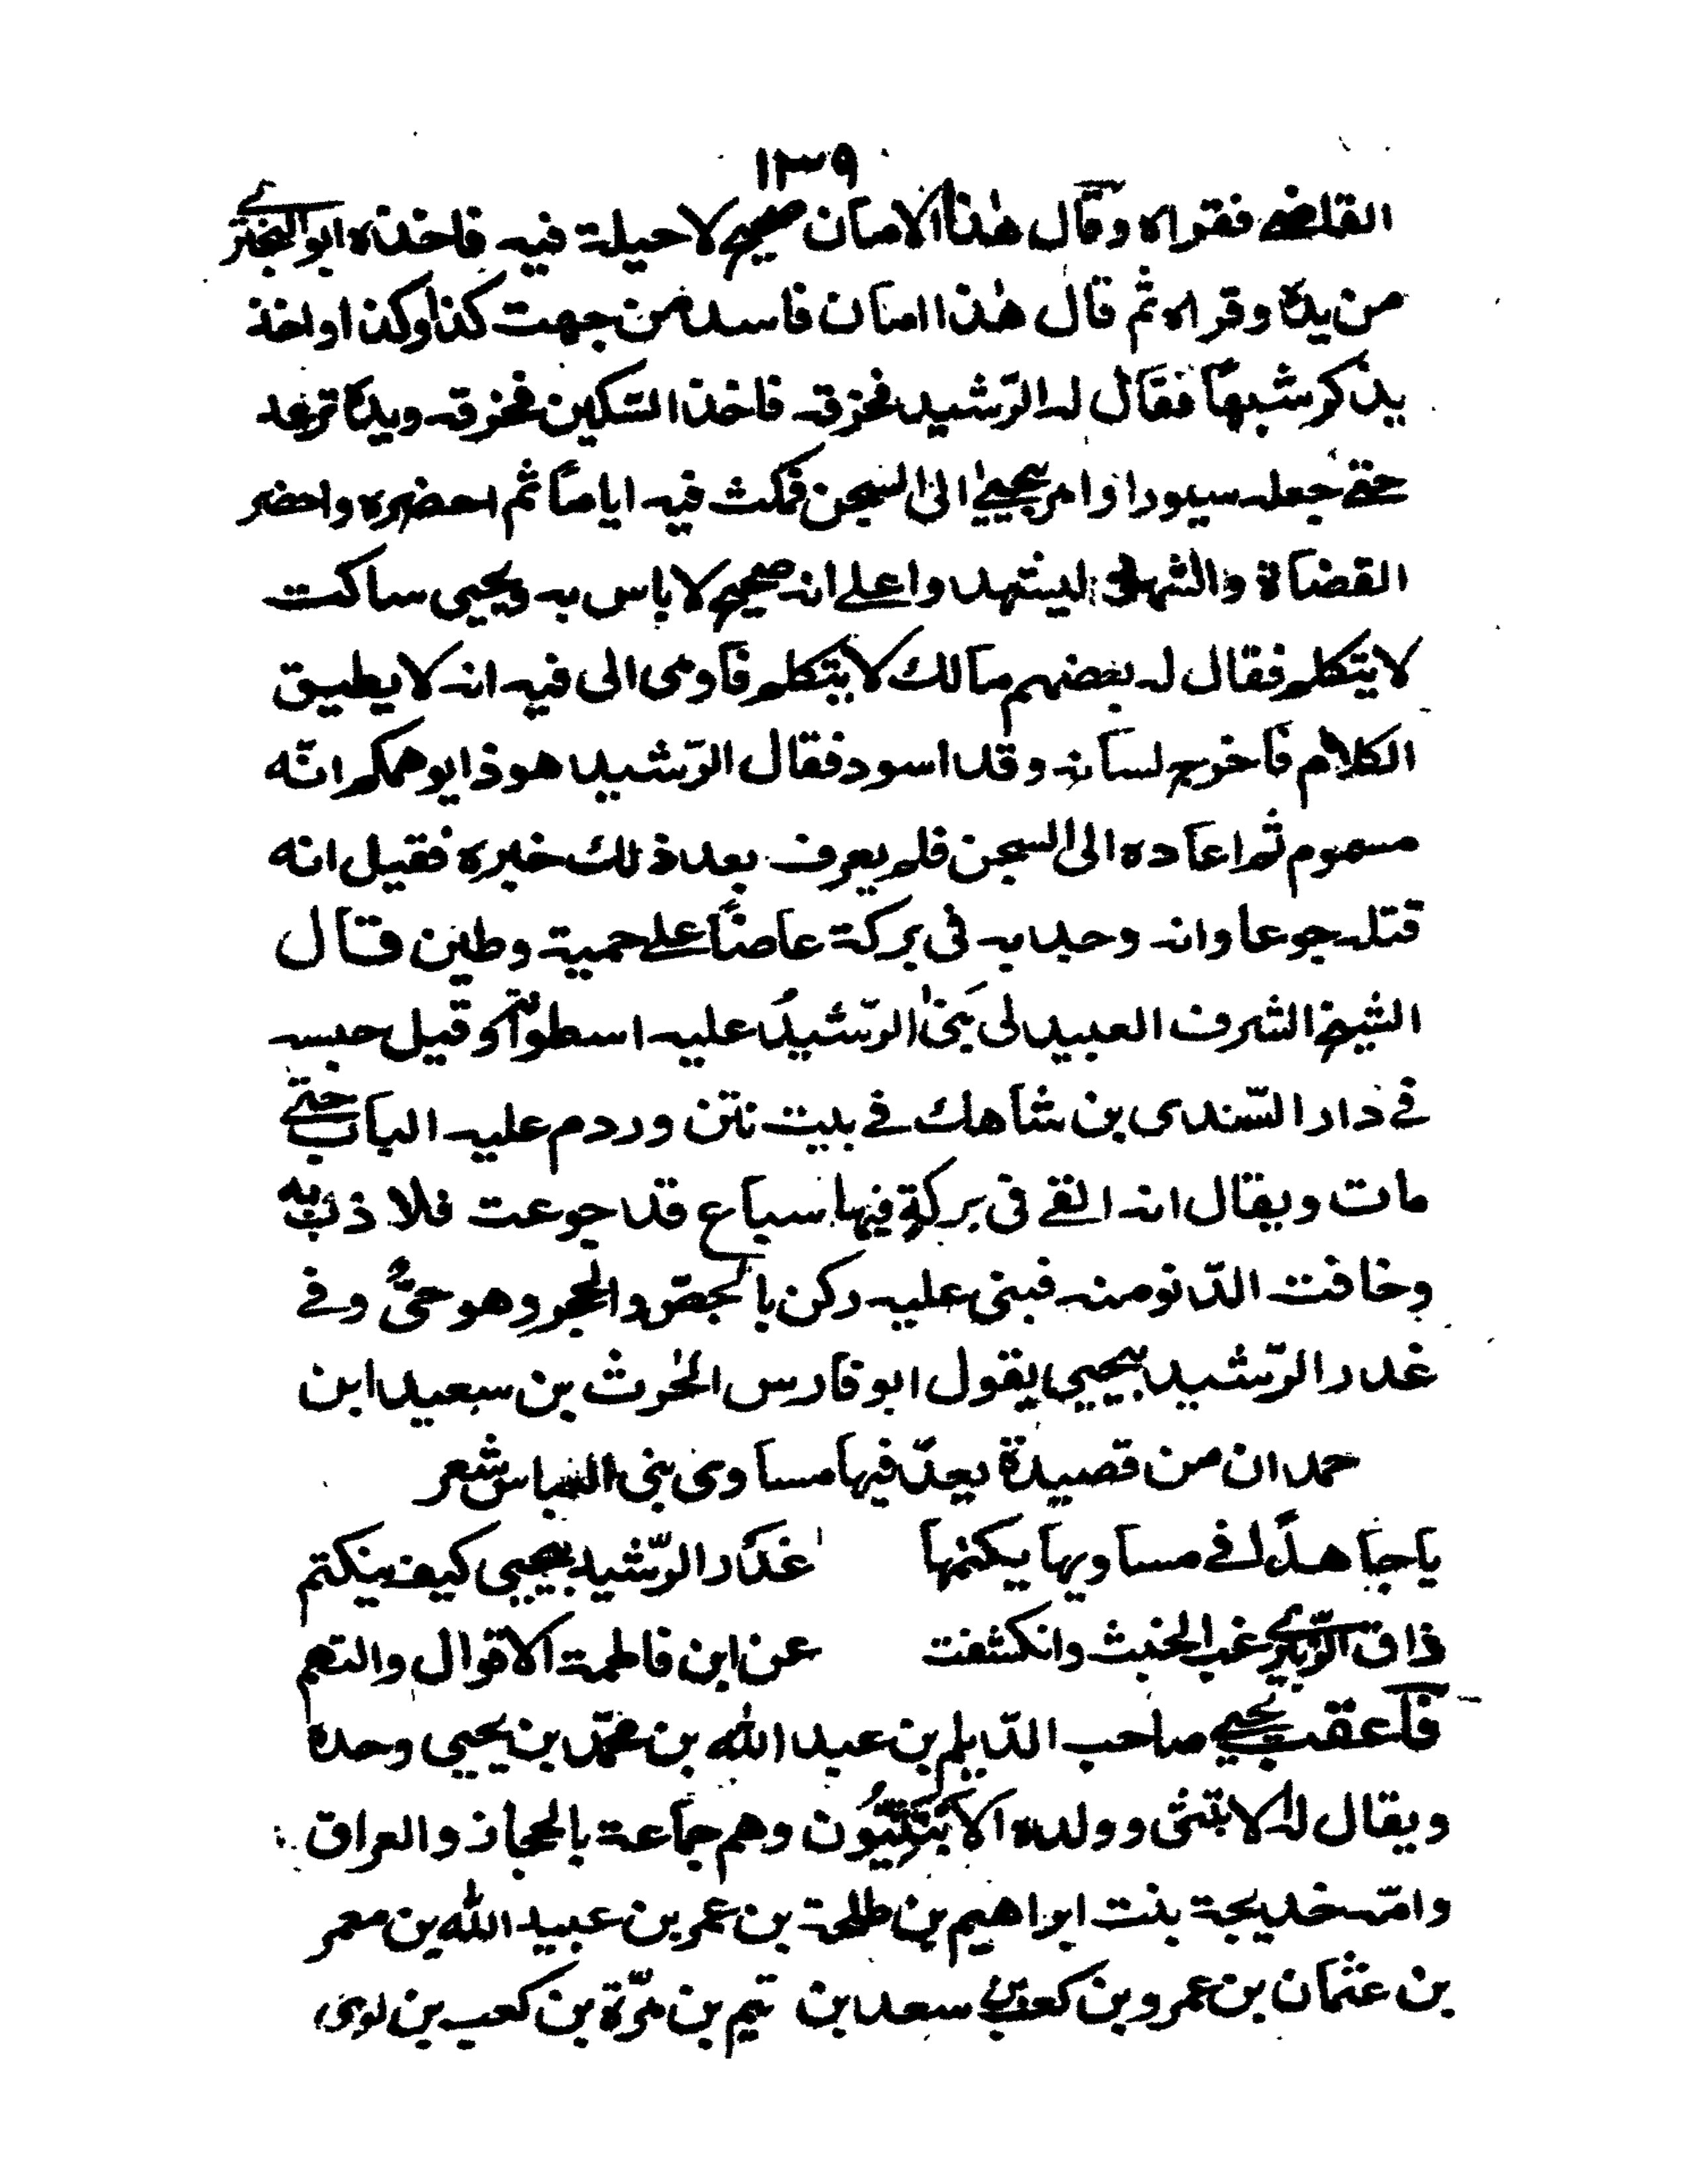 ١٣٩
القاضى فقراه وقال هٰذا الامان صحيح لا حيلة فيه فاخذه ابو البخترى
من يده وقراه ثم قال هٰذا امان فاسد من جهت كذا وكذا واخذ
يذكر شبهًا فقال له الرّشيد فخزقه فاخذ السّكين فخزقه ويده ترعد
حتى جعله سيورا وامر بيحيىٰ الى السجن فمكث فيه ايامًا ثم احضره واحضر
القضاة والشهود ليشهدوا على انه صحيح لا باس به ويحيى ساكت
لا يتكلم فقال له بعضهم مالك لا يتكلم فاومى الى فيه انه لا يطيق
الكلام فاخرج لسانه وقد اسود فقال الرّشيد هو ذا يوهمكم انّه
مسموم ثم اعاده الى السجن فلم يعرف بعد ذلك خبره فقيل انه
قتله جوعا وانه وجد به فى بركة عاضًا على حمية وطين قال
الشيخ الشرف العبيدلى بَنىٰ الرّشيدُ عليه اسطوانة وقيل حبسه
فى دار السّندى بن شاهك فى بيت نتن وردم عليه الباب حتى
مات ويقال انه القى فى بركة فيها سباع قد جوعت فلاذت به
وخافت الدّنو منه فبنى عليه ركن بالجصّ والحجر وهو حىٌّ وفى
غدر الرّشيد بيحيى يقول ابو فارس الحٰرث بن سعيد ابن
حمدان من قصيدة يعدّ فيها مساوى بنى العباس شعر
يا جاهدًا فى مساويها يكتمها غدر الرّشيد بيحيى كيف ينكتم
ذاق الزّبيرى غب الخبث وانكشفت عن ابن فاطمة الاقوال والتهم
فاعقب يحيى صاحب الدّيلم بن عبد الله بن محمّد بن يحيى وحده
ويقال له الابتثى وولده الابتثيُّون وهم جماعة بالحجاز والعراق
وامّه خديجة بنت ابراهيم بن طلحة بن عمر بن عبيد الله بن معمر
بن عثمان بن عمرو بن كعب بن سعد بن تيم بن مرّة بن كعب بن لوى